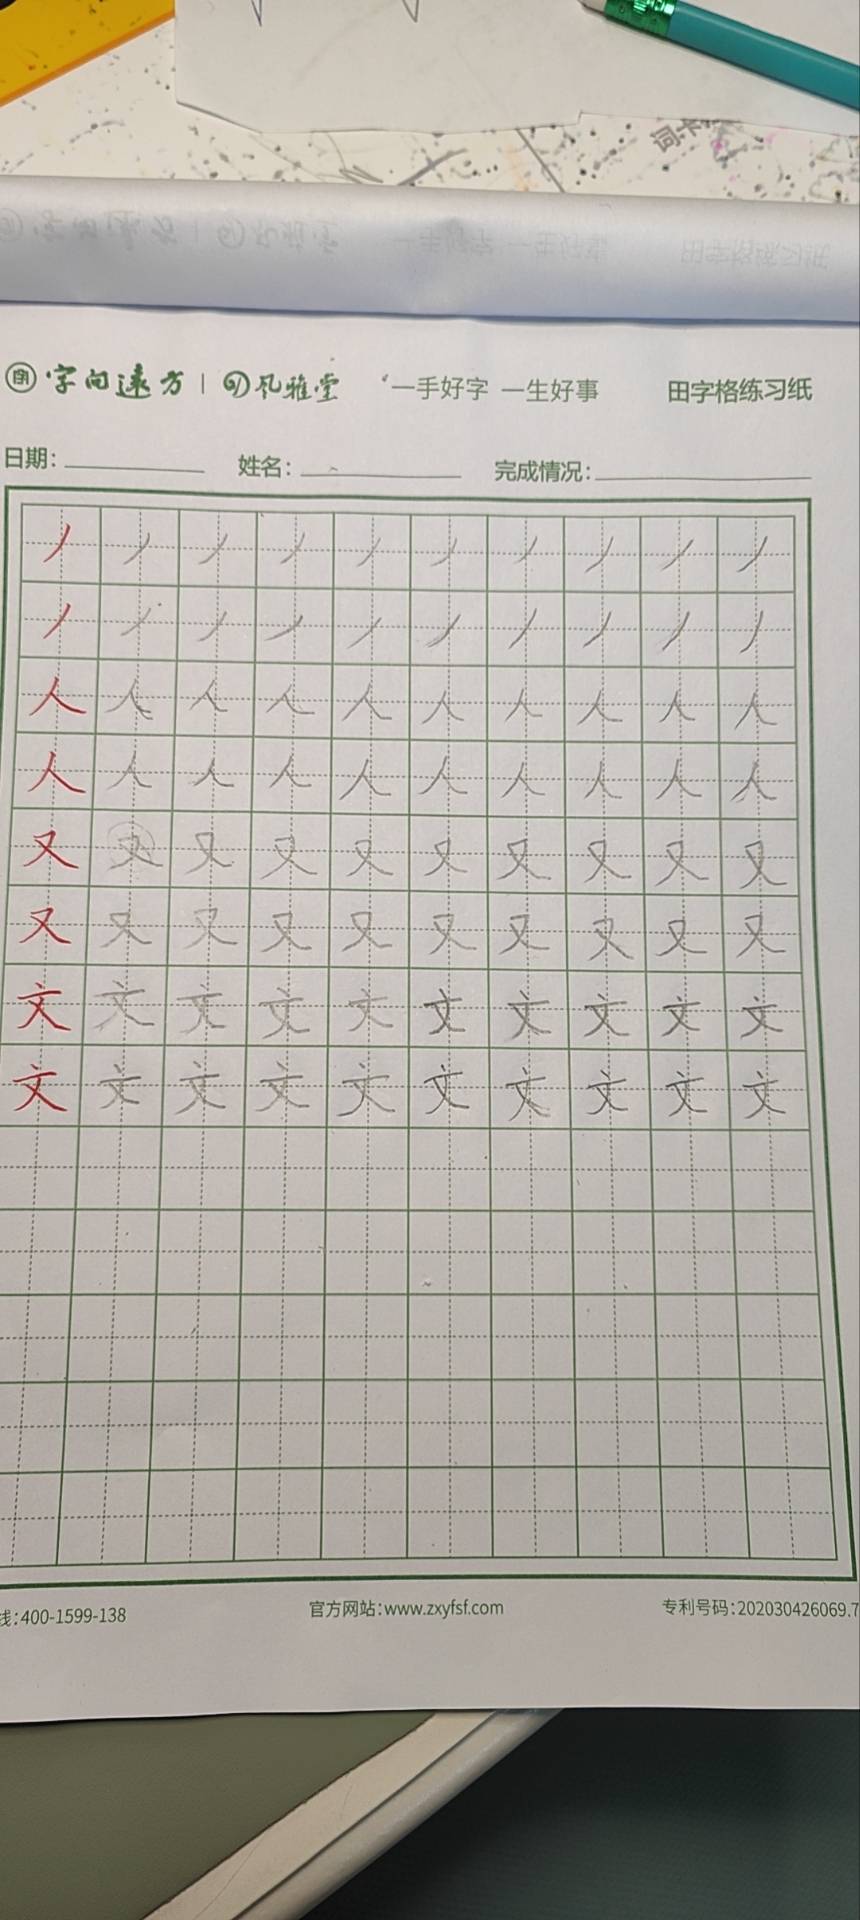 词卡
字向远方 | 风雅堂 一手好字 一生好事 田字格练习纸
日期: 姓名: 完成情况:
丿 丿 丿 丿 丿 丿 丿 丿 丿 丿
丿 丿 丿 丿 丿 丿 丿 丿 丿 丿
人 人 人 人 人 人 人 人 人 人
人 人 人 人 人 人 人 人 人 人
又 又 又 又 又 又 又 又 又 又
又 又 又 又 又 又 又 又 又 又
文 文 文 文 文 文 文 文 文 文
文 文 文 文 文 文 文 文 文 文
线:400-1599-138 官方网站:www.zxyfsf.com 专利号码:202030426069.7